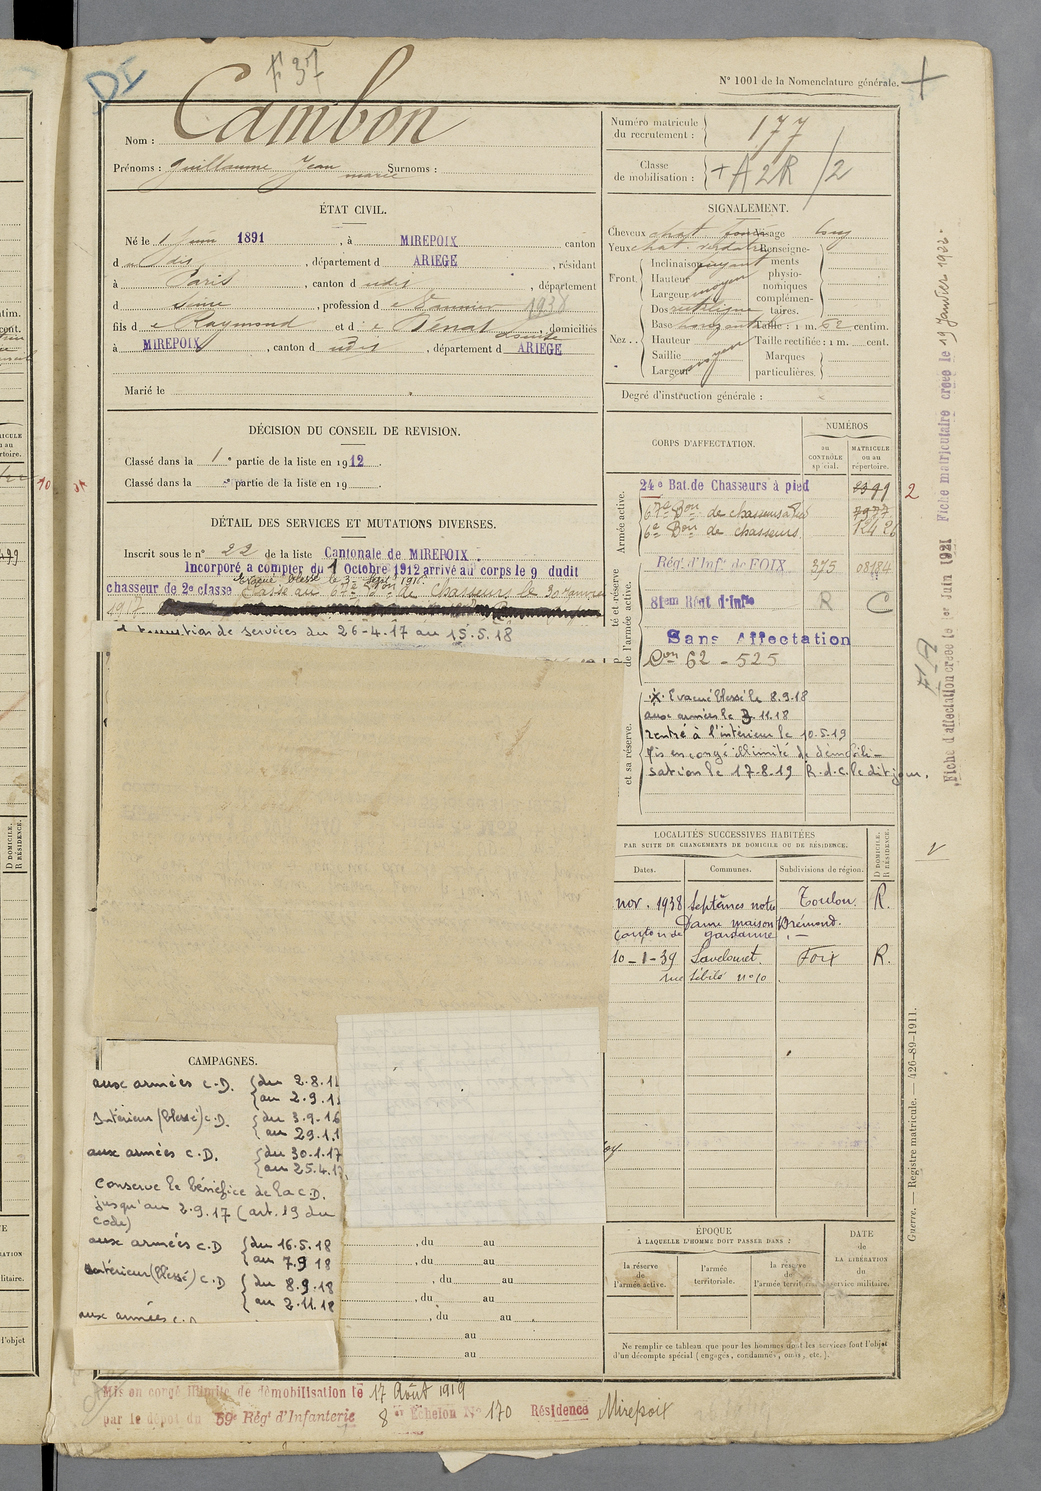 DI
F 37
N° 1001 de la Nomenclature générale.
Nom : Cambon
Prénoms : Guillaume Jean marie Surnoms :
Numéro matricule du recrutement : 177
Classe de mobilisation : + A2R /2
ÉTAT CIVIL.
Né le 1 Juin 1891, à MIREPOIX canton
d udit, département d ARIEGE, résidant
à Paris, canton d udit, département
d Seine, profession d e Vannier 1938
fils d e Raymond et d e Dénat domiciliés
à MIREPOIX, canton d udit, département d ARIEGE
Marié le
SIGNALEMENT.
Cheveux chat. foncé Visage long
Yeux chat. verdâtre
Front. Inclinaison fuyant
Hauteur moyen
Largeur moyen
Nez.. Dos rectiligne
Base horizontale
Hauteur
Saillie
Largeur moyen
Renseignements physionomiques complémentaires.
Taille : 1 m. 62 centim.
Taille rectifiée : 1 m. cent.
Marques particulières.
Degré d'instruction générale :
DÉCISION DU CONSEIL DE REVISION.
Classé dans la 1e partie de la liste en 1912.
Classé dans la e partie de la liste en 19
DÉTAIL DES SERVICES ET MUTATIONS DIVERSES.
Inscrit sous le n° 22 de la liste Cantonale de MIREPOIX.
Incorporé a compter du 1 Octobre 1912 arrivé au corps le 9 dudit
Evacué blessé le 3 Sept. 1916.
chasseur de 2e classe Passé au 67e Bon de Chasseurs le 30 janvier
1917
de services du 26-4.17 au 15.5.18
CORPS D'AFFECTATION.
NUMÉROS
au CONTRÔLE spécial.
MATRICULE ou au répertoire.
Armée active.
24e Bat. de Chasseurs à pied 8399
67e Bon de chasseurs à pied 7977
6e Bon de chasseurs. R426
Rég. d'Infie de FOIX 375 08184
81em Régt d'Infie R C
Sans Affectation
Don 62 - 525
et sa réserve.
X. Evacué blessé le 8.9.18
aux armées le 3.11.18
rentré à l'intérieur le 10.5.19
Mis en congé illimité de démobili-
sation le 17-8-19 R.d.c. le dit jour.
LOCALITÉS SUCCESSIVES HABITÉES
PAR SUITE DE CHANGEMENTS DE DOMICILE OU DE RÉSIDENCE.
Dates. Communes. Subdivisions de région. D DOMICILE. R RÉSIDENCE.
nov. 1938 Septèmes notre Toulon. R.
Dame maison Brémond.
Canton de gardanne
10-1-39 Lavelanet. Foix R.
rue n° 10
CAMPAGNES.
aux armées C.D. du 2.8.1
au 2.9.1
Intérieur (blessé) C.D. du 3.9.16
au 29.1.1
aux armées C.D. du 30.1.17
au 25.4.17
Conserve le bénéfice de la C.D.
jusqu'au 2.9.17 (art. 19 du
code)
aux armées C.D du 16.5.18
au 7.9 18
Intérieur (blessé) C.D du 8.9.18
au 2.11.18
aux armées C.D
, du au
, du au
, du au
, du au
, du au
au
au
ÉPOQUE
À LAQUELLE L'HOMME DOIT PASSER DANS :
la réserve de l'armée active.
l'armée territoriale.
la réserve de l'armée territoriale.
DATE de LA LIBÉRATION du service militaire.
Ne remplir ce tableau que pour les hommes dont les services font l'objet
d'un décompte spécial (engagés, condamnés, omis, etc.).
Mis en congé illimité de démobilisation le 17 Août 1919
par le dépôt du 59e Rég. d'Infanterie 8e Echelon N° 170 Résidence Mirepoix
Guerre. — Registre matricule. — 426-89-1911.
Fiche d'affectation créée le 1er Juin 1921 Fiche matriculaire créée le 19 Janvier 1922.